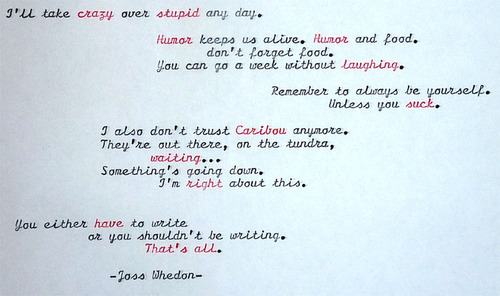 I'll take crazy over stupid any day.
Humor keeps us alive. Humor and food.
don't forget food.
You can go a week without laughing.
Remember to always be yourself.
Unless you suck.
I also don't trust Caribou anymore.
They're out there, on the tundra,
waiting...
Something's going down.
I'm right about this.
You either have to write
or you shouldn't be writing.
That's all.
-Joss Whedon-